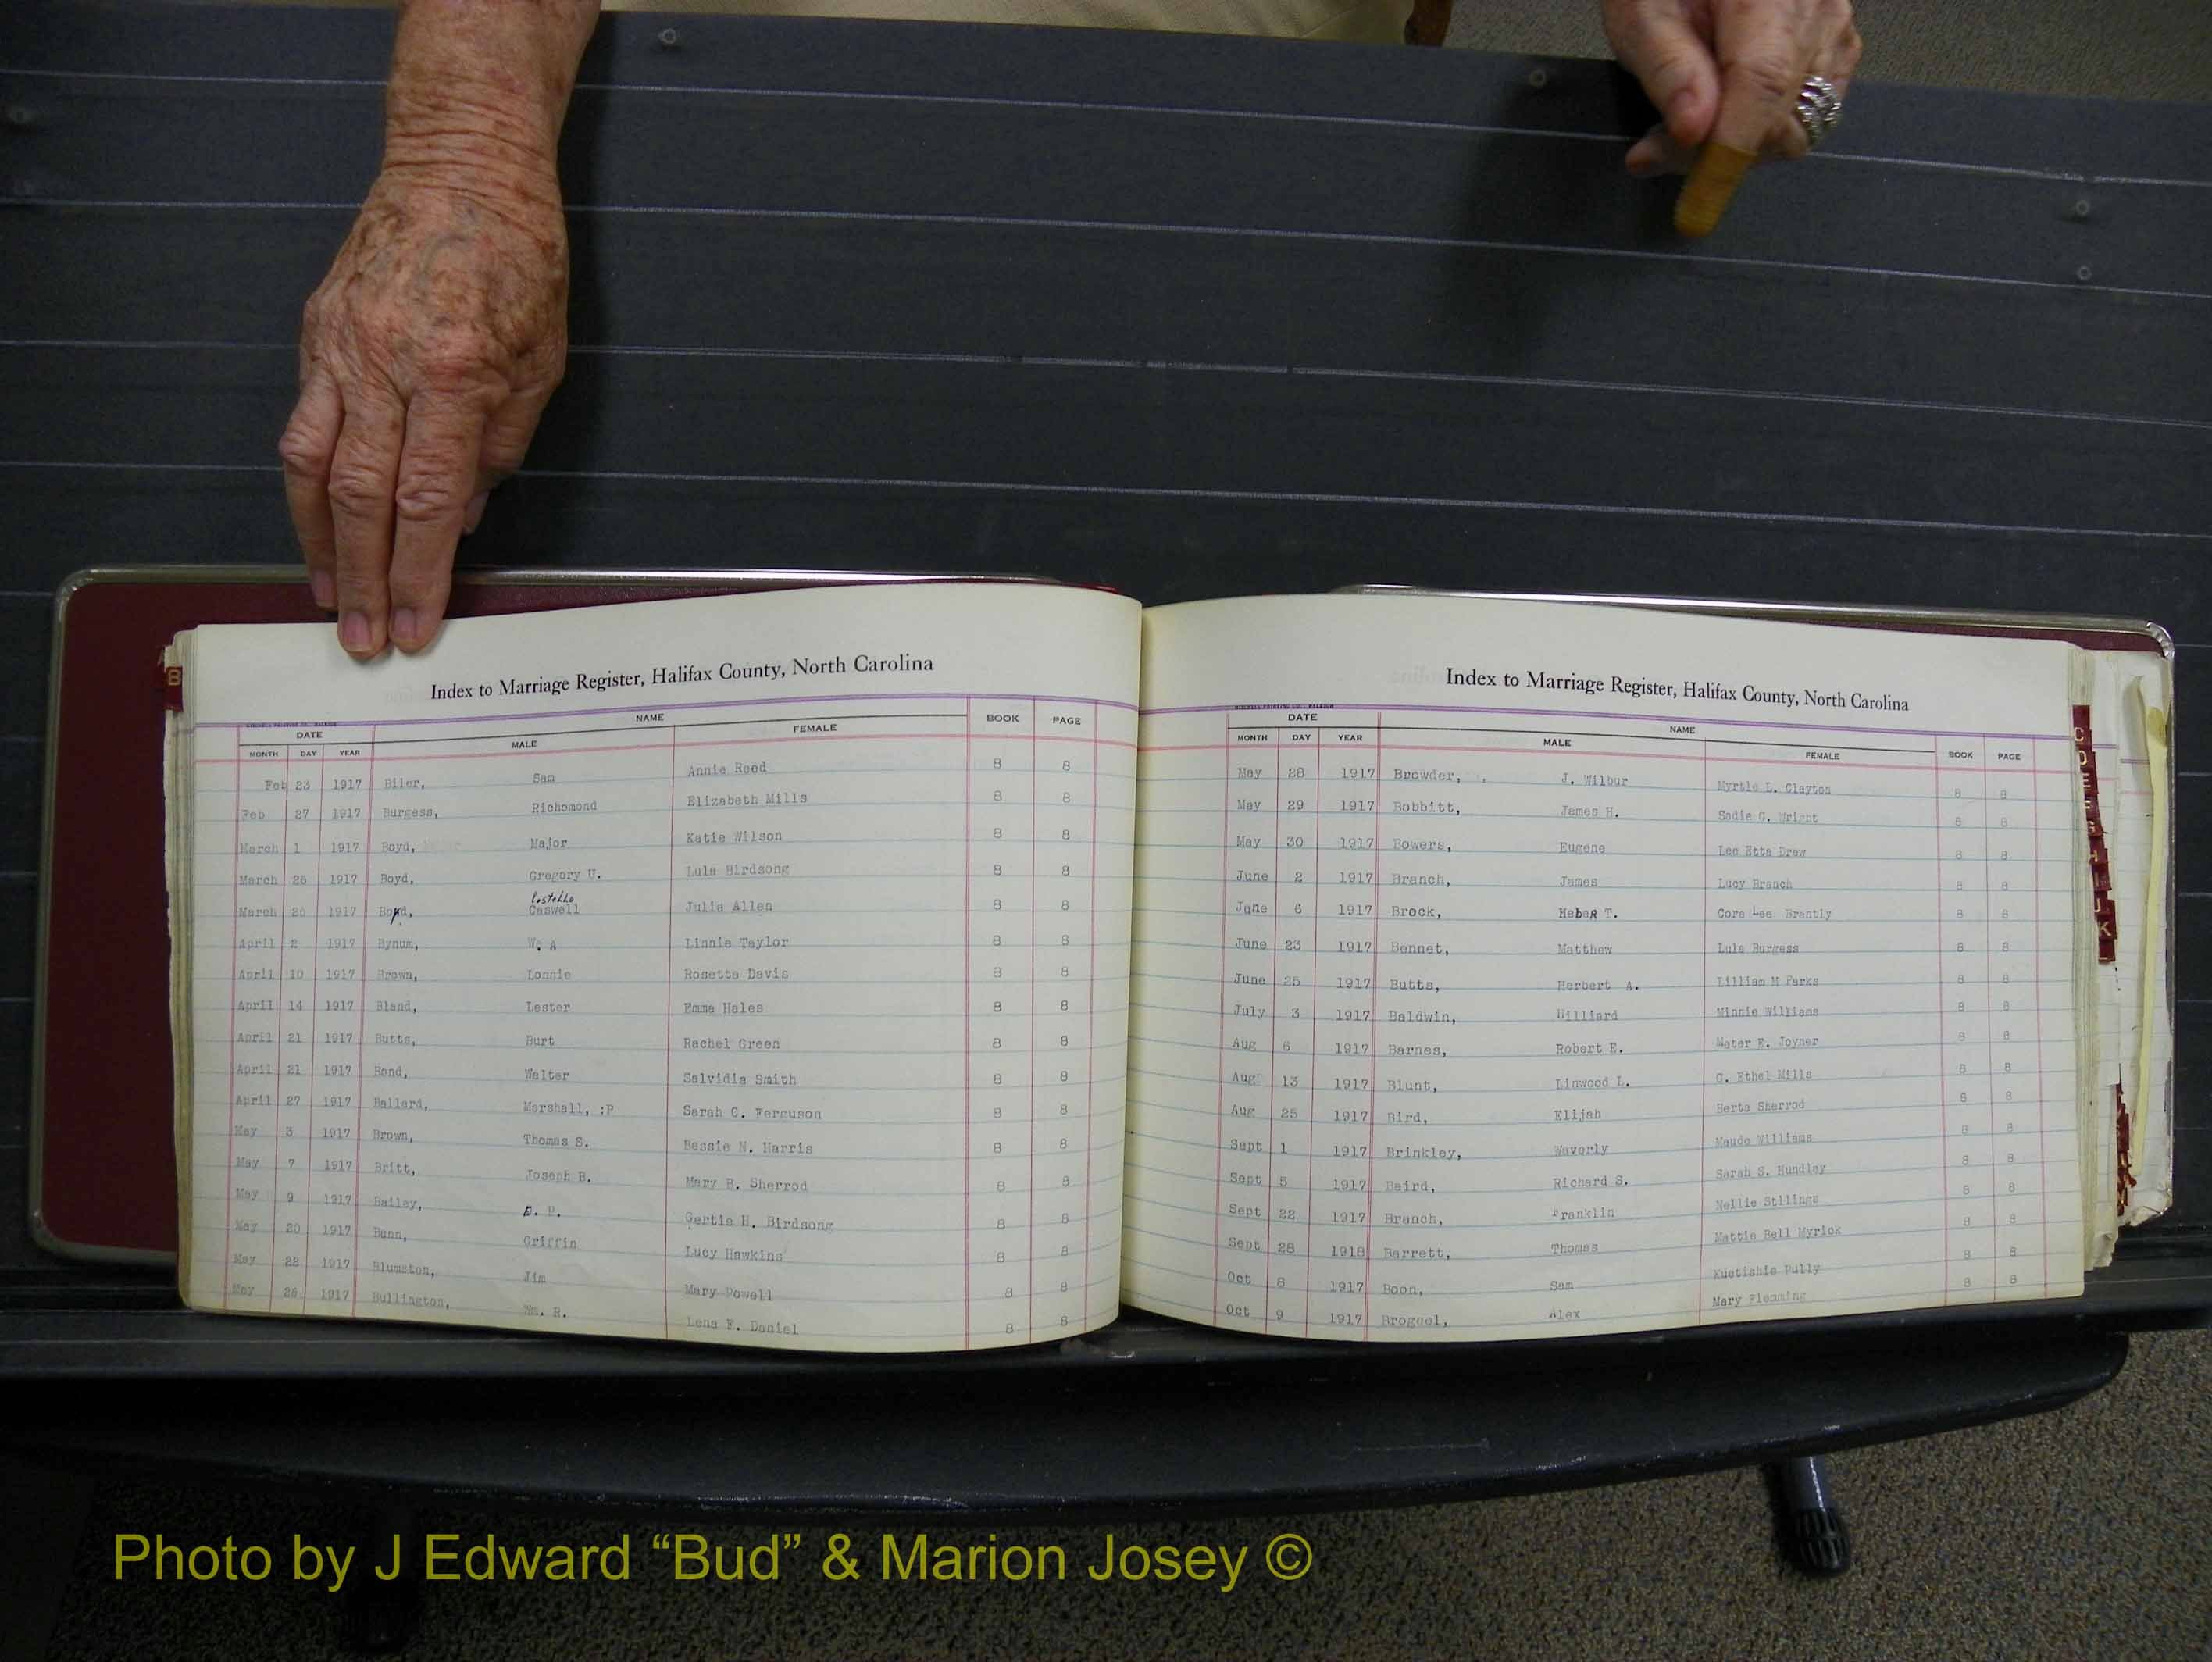 B
Index to Marriage Register, Halifax County, North Carolina
DATE NAME BOOK PAGE
MONTH DAY YEAR MALE FEMALE
Feb 23 1917 Biler, Sam Annie Reed 8 8
Feb 27 1917 Burgess, Richomond Elizabeth Mills 8 8
March 1 1917 Boyd, Major Katie Wilson 8 8
March 26 1917 Boyd, Gregory U. Lula Birdsong 8 8
March 26 1917 Boyd, Costello Caswell Julia Allen 8 8
April 2 1917 Bynum, W. A Linnie Taylor 8 8
April 10 1917 Brown, Lonnie Rosetta Davis 8 8
April 14 1917 Bland, Lester Emma Hales 8 8
April 21 1917 Butts, Burt Rachel Green 8 8
April 21 1917 Bond, Walter Salvidia Smith 8 8
April 27 1917 Ballard, Marshall, :P Sarah C. Ferguson 8 8
May 3 1917 Brown, Thomas S. Bessie N. Harris 8 8
May 7 1917 Britt, Joseph B. Mary B. Sherrod 8 8
May 9 1917 Bailey, Gertie H. Birdsong 8 8
May 20 1917 Bunn, Griffin Lucy Hawkins 8 8
May 22 1917 Blumston, Jim Mary Powell 8 8
May 26 1917 Bullington, Wm. R. Lena F. Daniel 8 8
Index to Marriage Register, Halifax County, North Carolina
DATE NAME BOOK PAGE
MONTH DAY YEAR MALE FEMALE
May 28 1917 Browder, J. Wilbur Myrtle L. Clayton 8 8
May 29 1917 Bobbitt, James H. Sadie G. Wright 8 8
May 30 1917 Bowers, Eugene Lee Etta Drew 8 8
June 2 1917 Branch, James Lucy Branch 8 8
June 6 1917 Brock, Heber T. Cora Lee Brantly 8 8
June 23 1917 Bennet, Matthew Lula Burgess 8 8
June 25 1917 Butts, Herbert A. Lilliam M Parks 8 8
July 3 1917 Baldwin, Hilliard Minnie Williams 8 8
Aug 6 1917 Barnes, Robert E. Mater E. Joyner 8 8
Aug 13 1917 Blunt, Linwood L. G. Ethel Mills 8 8
Aug 25 1917 Bird, Elijah Berta Sherrod 8 8
Sept 1 1917 Brinkley, Waverly Maude Williams 8 8
Sept 5 1917 Baird, Richard S. Sarah S. Hundley 8 8
Sept 22 1917 Branch, Franklin Nellie Stllings 8 8
Sept 28 1918 Barrett, Thomas Mattie Bell Myrick 8 8
Oct 8 1917 Boon, Sam Kuetishie Pully 8 8
Oct 9 1917 Brogeel, Alex Mary Flemming 8 8
C
D
H
J
K
Photo by J Edward “Bud” & Marion Josey ©